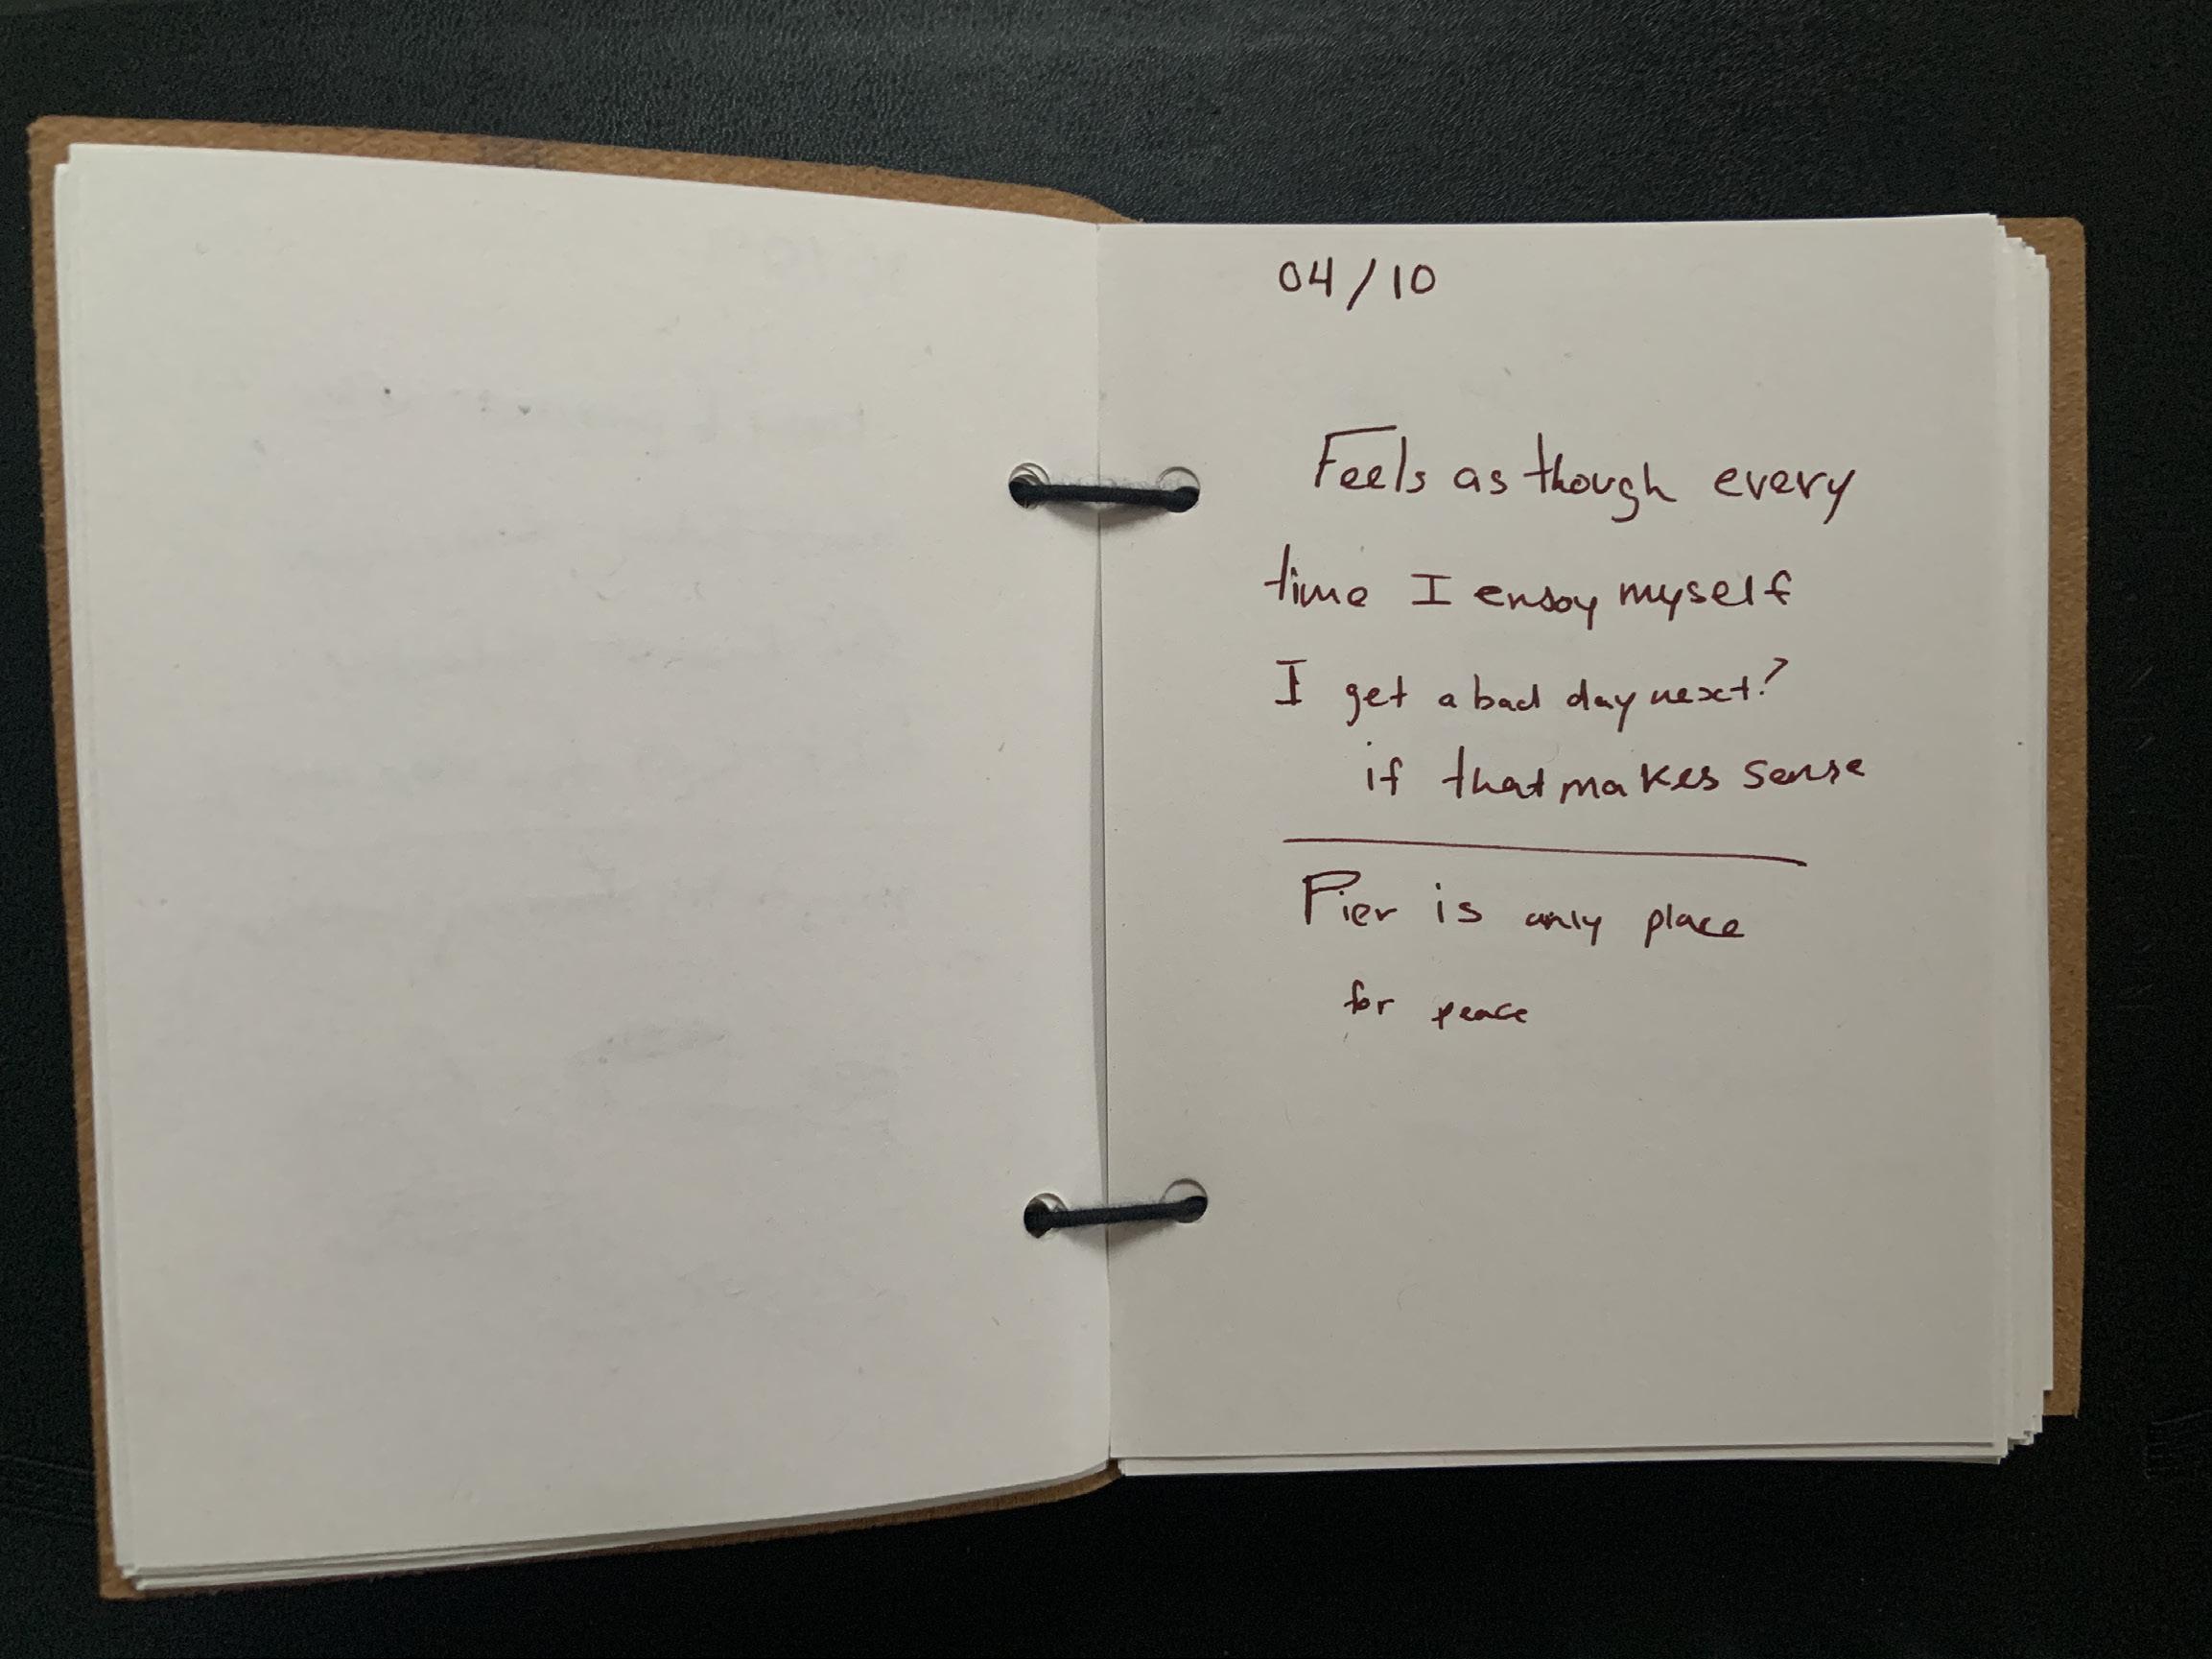 04/10
Feels as though every
time I enjoy myself
I get a bad day next?
if that makes sense
Pier is only place
for peace